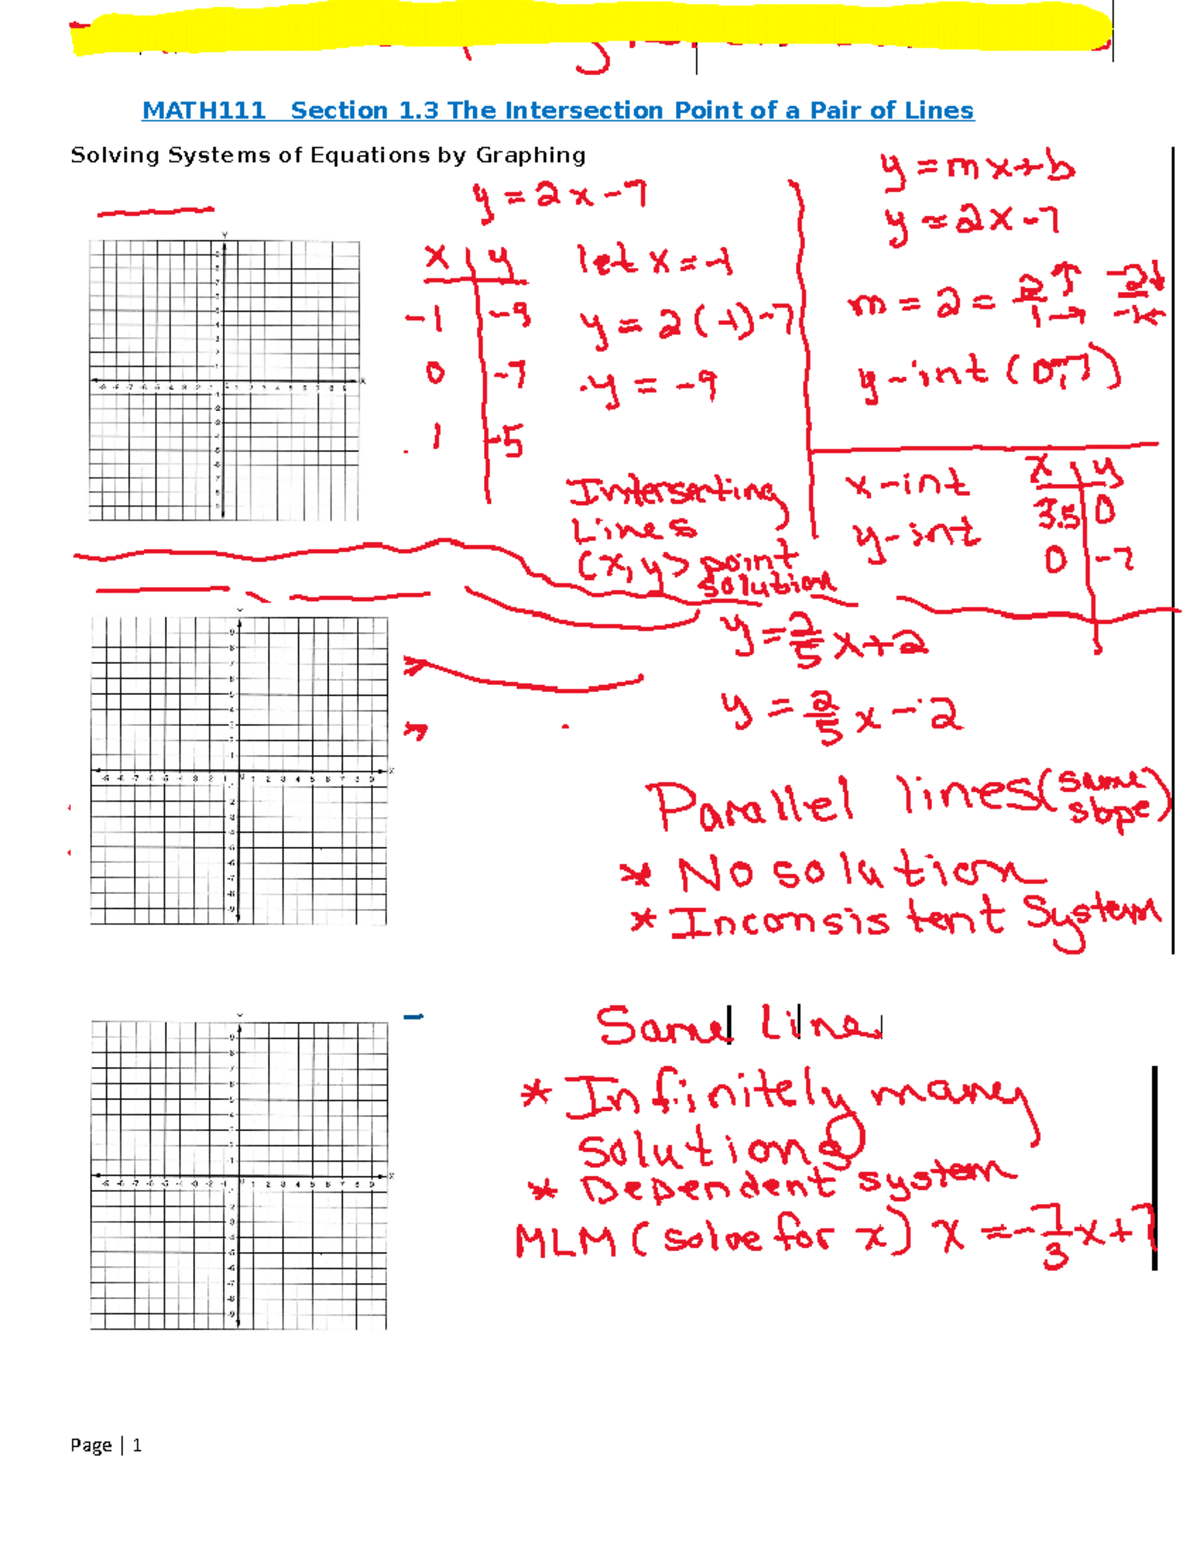 MATH111 Section 1.3 The Intersection Point of a Pair of Lines
Solving Systems of Equations by Graphing
y = 2x - 7
x | y
-1 | -9
0 | -7
1 | -5
let x = -1
y = 2(-1) - 7
y = -9
Intersecting
Lines
(x, y) point
solution
y = mx + b
y = 2x - 7
m = 2 = 2↑/1→ -2↓/-1←
y-int (0,-7)
x-int
y-int
x | y
3.5 | 0
0 | -7
y = 2/5 x + 2
y = 2/5 x - 2
Parallel lines (same slope)
* No solution
* Inconsistent System
Same Line
* Infinitely many
solutions
* Dependent system
MLM (solve for x) x = -7/3 x + 7
Page | 1